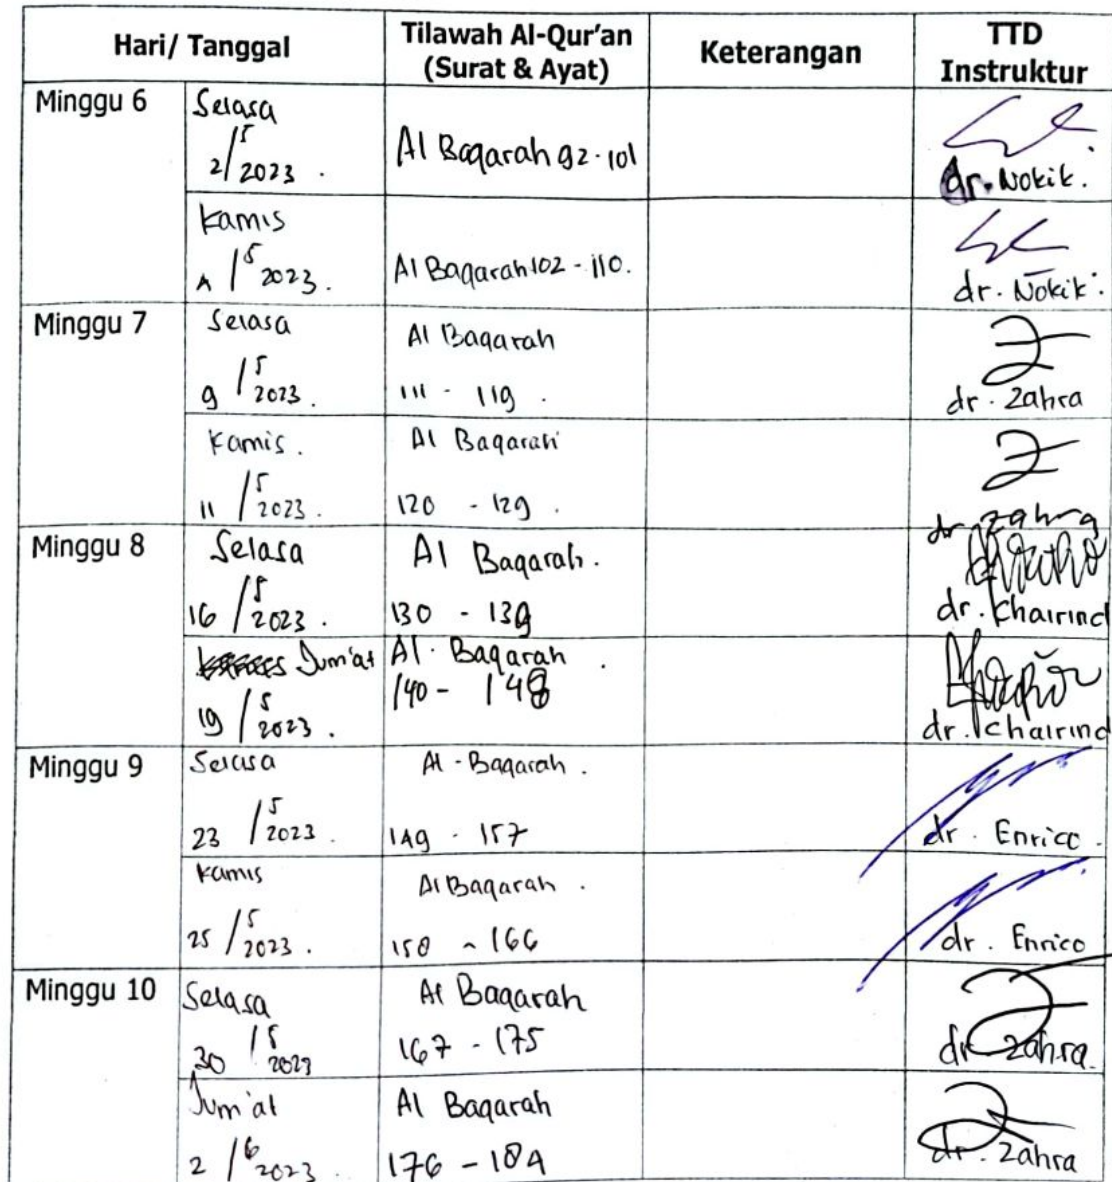 Hari/ Tanggal
Tilawah Al-Qur'an
(Surat & Ayat)
Keterangan
TTD
Instruktur
Minggu 6
Selasa
2/5 2023 .
Al Baqarah 92-101
dr. Nokik.
Kamis
4 /5 2023.
Al Baqarah 102 - 110.
dr. Nokik.
Minggu 7
Selasa
9 /5 2023 .
Al Baqarah
111 - 119 .
dr. Zahra
Kamis.
11 /5 2023 .
Al Baqarah
120 - 129 .
dr Zahra
Minggu 8
Selasa
16 /5 2023 .
Al Baqarah.
130 - 139
dr. Khairind
Jum'at
19 /5 2023 .
Al. Baqarah .
140 - 148
dr. Khairind
Minggu 9
Selasa
23 /5 2023 .
Al - Baqarah .
149 - 157
dr . Enrico .
Kamis
25 /5 2023 .
Al Baqarah .
158 - 166
dr . Enrico
Minggu 10
Selasa
30 /5 2023
Al Baqarah
167 - 175
dr Zahra.
Jum'at
2 /6 2023 .
Al Baqarah
176 - 184
dr. Zahra